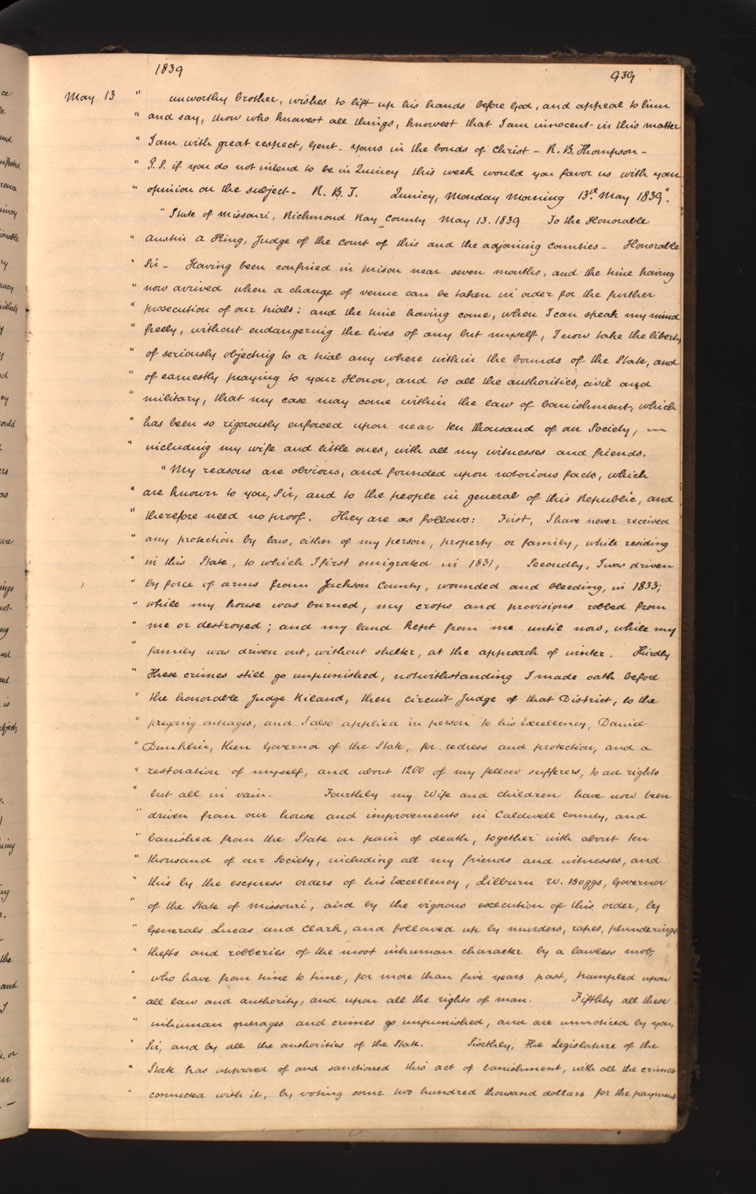 1839 939
May 13 " unworthy brother, wishes to lift up his hands before God, and appeal to him
" and say, thou who knowest all things, knowest that I am innocent in this matter
" I am with great respect, Gent. yours in the bonds of Christ – R. B. Thompson –
" P.S. if you do not intend to be in Quincy this week would you favor us with your
" opinion on the subject – R. B. T. Quincy, Monday Morning 13th May 1839".
" State of Missouri, Richmond Ray County May 13. 1839 To the Honorable
" Austin A King, Judge of the court of this and the adjoining counties – Honorable
" Sir – Having been confined in prison near seven months, and the time having
" now arrived when a change of venue can be taken in order for the further
" prosecution of our trials; and the time having come, when I can speak my mind
" freely, without endangering the lives of any but myself, I now take the liberty
" of seriously objecting to a trial any where within the bounds of the State, and
" of earnestly praying to your Honor, and to all the authorities, civil and
" military, that my case may come within the law of banishment, which
" has been so rigorously enforced upon near ten thousand of our Society, —
" including my wife and little ones, with all my witnesses and friends.
" My reasons are obvious, and founded upon notorious facts, which
" are known to you, Sir, and to the people in general of this Republic, and
" therefore need no proof. They are as follows: First, I have never received
" any protection by law, either of my person, property or family, while residing
" in this State, to which I first emigrated in 1831, Secondly, I was driven
" by force of arms from Jackson County, wounded and bleeding, in 1833;
" while my house was burned, my crops and provisions robbed from
" me or destroyed; and my land kept from me until now, while my
" family was driven out, without shelter, at the approach of winter. Thirdly
" These crimes still go unpunished, notwithstanding I made oath before
" the honorable Judge Riland, then circuit Judge of that District, to the
" foregoing outrages, and I also applied in person to his Excellency, Daniel
" Dunklin, then Governor of the State, for redress and protection, and a
" restoration of myself, and about 1200 of my fellow sufferers, to our rights
" but all in vain. Fourthly my Wife and children have now been
" driven from our house and improvements in Caldwell County, and
" banished from the State on pain of death, together with about ten
" thousand of our Society, including all my friends and witnesses, and
" this by the express orders of his Excellency, Lilburn W. Boggs, Governor
" of the State of Missouri, and by the vigorous execution of this order, by
" Generals Lucas and Clark, and followed up by murders, rapes, plunderings
" thefts and robberies of the most inhuman character by a lawless mob,
" who have from time to time, for more than five years past, trampled upon
" all law and authority, and upon all the rights of man. Fifthly all these
" inhuman outrages and crimes go unpunished, and are unnoticed by you,
" Sir, and by all the authorities of the State. Sixthly, The Legislature of the
" State has approved of and sanctioned this act of banishment, with all the crimes
" connected with it, by voting some two hundred thousand dollars for the payment